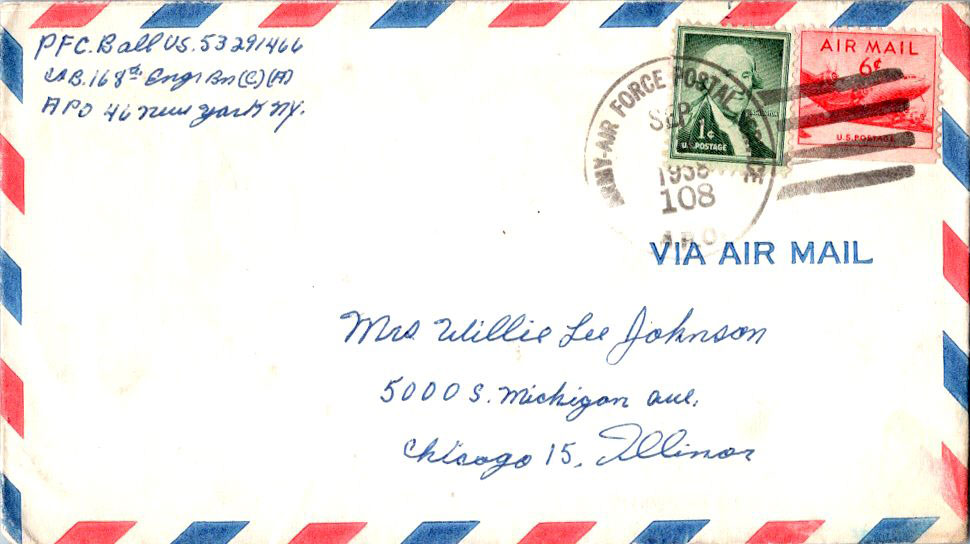 PFC. Ball US. 53291466
Co B. 168th Engr Bn (C) (A)
APO 46 New York NY.
AIR MAIL
6¢
U.S. POSTAGE
1¢
U.S. POSTAGE
ARMY-AIR FORCE POSTAL SERVICE
SEP
1958
108
A.P.O.
VIA AIR MAIL
Mrs Willie Lee Johnson
5000 S. Michigan ave.
Chicago 15, Illinois